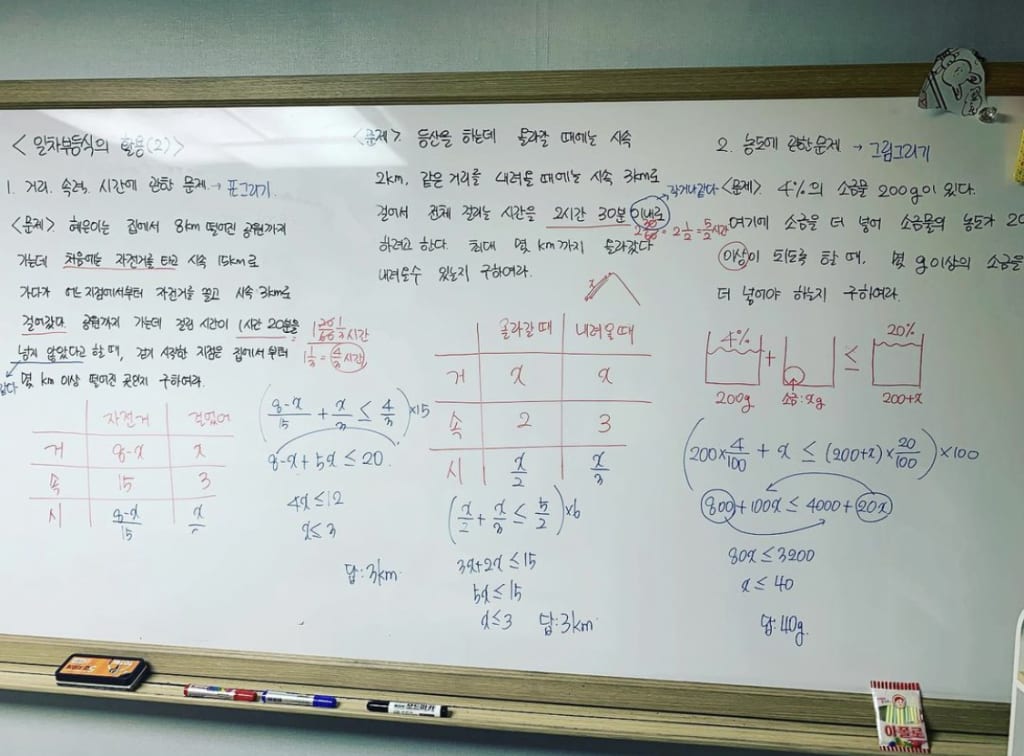 <일차부등식의 활용(2)>
1. 거리. 속력. 시간에 관한 문제. → 표그리기.
<문제> 혜원이는 집에서 8km 떨어진 공원까지
가는데 처음에는 자전거를 타고 시속 15km로
가다가 어느 지점에서부터 자전거를 끌고 시속 3km로
걸어갔다. 공원까지 가는데 걸린 시간이 1시간 20분을
넘지 않았다고 할 때, 걷기 시작한 지점은 집에서부터
몇 km 이상 떨어진 곳인지 구하여라.
1 20/60 1/3 시간
1 1/3 = 4/3 시간
자전거 걸었어
거 8-x x
속 15 3
시 (8-x)/15
((8-x)/15 + x/3 ≤ 4/3)×15
8-x+5x ≤ 20.
4x ≤ 12
x ≤ 3
답: 3km.
<문제>. 등산을 하는데 올라갈 때에는 시속
2km, 같은 거리를 내려올 때에는 시속 3km로
걸어서 전체 걸리는 시간을 2시간 30분 이내로
작거나같다
2 30/60 = 2 1/2 = 5/2 시간
하려고 한다. 최대 몇 km까지 올라갔다
내려올수 있는지 구하여라.
올라갈때 내려올때
거 x x
속 2 3
시 x/2 x/3
(x/2 + x/3 ≤ 5/2)×6
3x+2x ≤ 15
5x ≤ 15
x ≤ 3 답: 3km.
2. 농도에 관한문제 → 그림그리기
<문제>. 4%의 소금물 200g이 있다.
여기에 소금을 더 넣어 소금물의 농도가
이상이 되도록 할 때, 몇 g이상의 소금을
더 넣어야 하는지 구하여라.
4% + ≤ 20%
200g 소금:xg 200+x
(200×4/100 + x ≤ (200+x)×20/100)×100
800+100x ≤ 4000+20x
80x ≤ 3200
x ≤ 40
답: 40g.
보드마카
아폴로